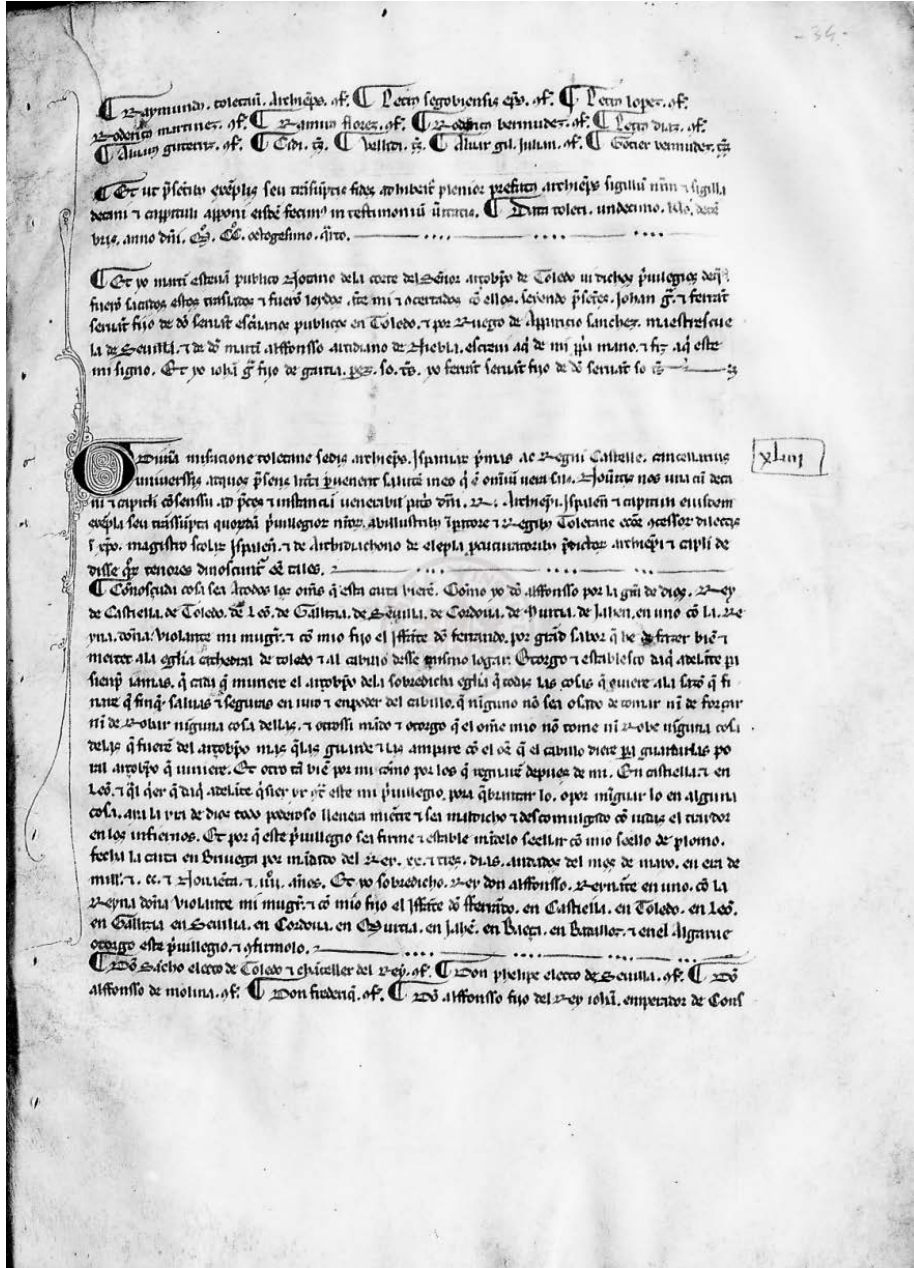 - 34 -
¶ Raymundꝰ. toletanꝰ. Archiep̄s. ꝯf̄. ¶ Petrꝰ segobiensis ep̄s. ꝯf̄. ¶ Petrꝰ lopez. ꝯf̄.
Roderic martinez. ꝯf̄. ¶ Ramirꝰ florez. ꝯf̄. ¶ Roderic bermudez. ꝯf̄. ¶ Petrꝰ diaz. ꝯf̄.
¶ Alvarꝰ guterriz. ꝯf̄. ¶ Cidi. t̄s. ¶ Velliti. t̄s. ¶ Alvar gil. Julian. ꝯf̄. ¶ Gotier vermudez. t̄s
¶ Et ut p̄senti exēplis seu trāsūptis fides adhibeat plenior prefatꝰ archiep̄s sigillū nr̄m ⁊ sigilla
decani ⁊ cappituli apponi eisdē fecimꝰ in testimoniū v̄itatis. ¶ Data toleti. undecimo. kl̄o. decē
bris. anno dn̄i. M̊. CC̊. octogesimo. q̄rto.
¶ Et yo martī estevan̄ publico Notario dela corte del Señor arçobp̄o de Toledo vi dichos p̄uilegios de q̄
fuerō sacados estos traslados ⁊ fuerō leydos ante mi ⁊ acertados cō ellos. seyendo p̄sētes. Johan g̃. ⁊ ferrāt
servāt fijo de dō servāt esc̄uanos publicos en Toledo. ⁊ por Ruego de Apparicio sanchez. maestrescue
la de Seuilla. ⁊ de dō martī alffonsso arcidiano de Niebla. escreui aq̄ de mi pp̄a mano. ⁊ fiz aq̄ este
mi signo. Et yo iohā g̃ fijo de garcia. pez. so. t̄s. yo ferrāt servāt fijo de dō servāt so t̄s
xliiij
G Diuīa miseracione toletane sedis archiep̄s. Ispaniar p̄mas ac Regni Castelle. cancellarius
universis atquos p̄sens lit̄a p̄venerit salutē in eo q̄ ē omniū vera salꝰ. Nov̄itis nos una cū deca
ni ⁊ capituli cōsenssu. ad p̄ces ⁊ instanciā venerabil pat̄s dn̄i. R. Archiep̄i. Ispalen̄ ⁊ capituli eiusdem
exēpla seu trāssūpta quordā p̄uillegior nr̄or. ab illustribꝰ īpatore ⁊ Regibꝰ Toletane ecc̄e ꝯcessor dilectis
ī xp̄o. magistro scolar Ispalen̄. ⁊ de Archidiachono de elepla procuratoribꝰ p̄dictor archiep̄i ⁊ capl̄i de
disse q̄r tenores dinoscunt̄ eē tales.
¶ Conosçuda cosa sea Atodos los om̄s q̄ esta carta vierē. Como yo dō alffonsso por la gr̄a de dios. Rey
de Castiella. de Toledo. de Leō. de Gallizia. de Seuilla. de Cordoua. de Murcia. de Jahen. en uno cō la Re
yna. doña. Violante mi mugr̄. ⁊ cō mio fijo el Iffāte dō ferrando. por grād sabor q̄ he de fazer biē ⁊
merçet ala eglīa cathedral de toledo ⁊ al cabillo desse mismo logar. Otorgo ⁊ establesco daq̄ adelāte pa
siemp̄ iamas. q̄ cada q̄ muriere el arçobp̄o dela sobredicha eglīa q̄ todas las cosas q̄ ouiere ala sazō q̄ fi
nare q̄ finq̄. saluas ⁊ seguras en iuro ⁊ en poder del cabillo. q̄ ninguno nō sea osado de tomar nī de forçar
nī de Robar ninguna cosa dellas. ⁊ otrossi mādo ⁊ otorgo q̄ el om̄e mio nō tome nī Robe nīguna cosa
delas q̄ fuerē del arçobp̄o mas q̄ las guarde ⁊ las ampare cō el om̄e q̄ el cabillo diere pa guardarlas po
ral arçobp̄o q̄ viniere. Et otro tā biē por mi cōmo por los q̄ regnarē depues de mi. En castiella. ⁊ en
Leō. ⁊ q̄l q̄er q̄ daq̄ adelāte q̄sier yr ꝯt̄ este mi p̄uillegio. pora q̄brantar lo. o por mīguar lo en alguna
cosa. aya la yra de dios todo poderoso llenera miētre ⁊ sea maldicho ⁊ descomulgado cō iudas el traydor
en los infiernos. Et por q̄ este p̄uillegio sea firme ⁊ estable mādelo seellar cō mio seello de plomo.
fecha la carta en Briuega por mādado del Rey. xx. ⁊ tres. dias. andados del mes de mayo. en era de
mill. ⁊. cc. ⁊ Nouaēta. ⁊. iiij. años. Et yo sobredicho. Rey don alffonsso. Reynāte en uno. cō la
Reyna doña violante mi mugr̄. ⁊ cō mio fijo el Iffāte dō fferrādo. en Castiella. en Toledo. en Leō.
en Gallizia en Seuilla. en Cordoua. en Murcia. en Jahē. en Baeça. en Badalloz. ⁊ en el Algarue
otorgo este p̄uillegio. ⁊ ꝯfirmolo.
¶ Dō Sācho electo de Toledo ⁊ chāceller del Rey. ꝯf̄. ¶ Don phelipe electo de Seuilla. ꝯf̄. ¶ Dō
alffonsso de molina. ꝯf̄. ¶ Don frederiq̄. ꝯf̄. ¶ Dō alffonsso fijo del Rey iohā. emperador de Cons